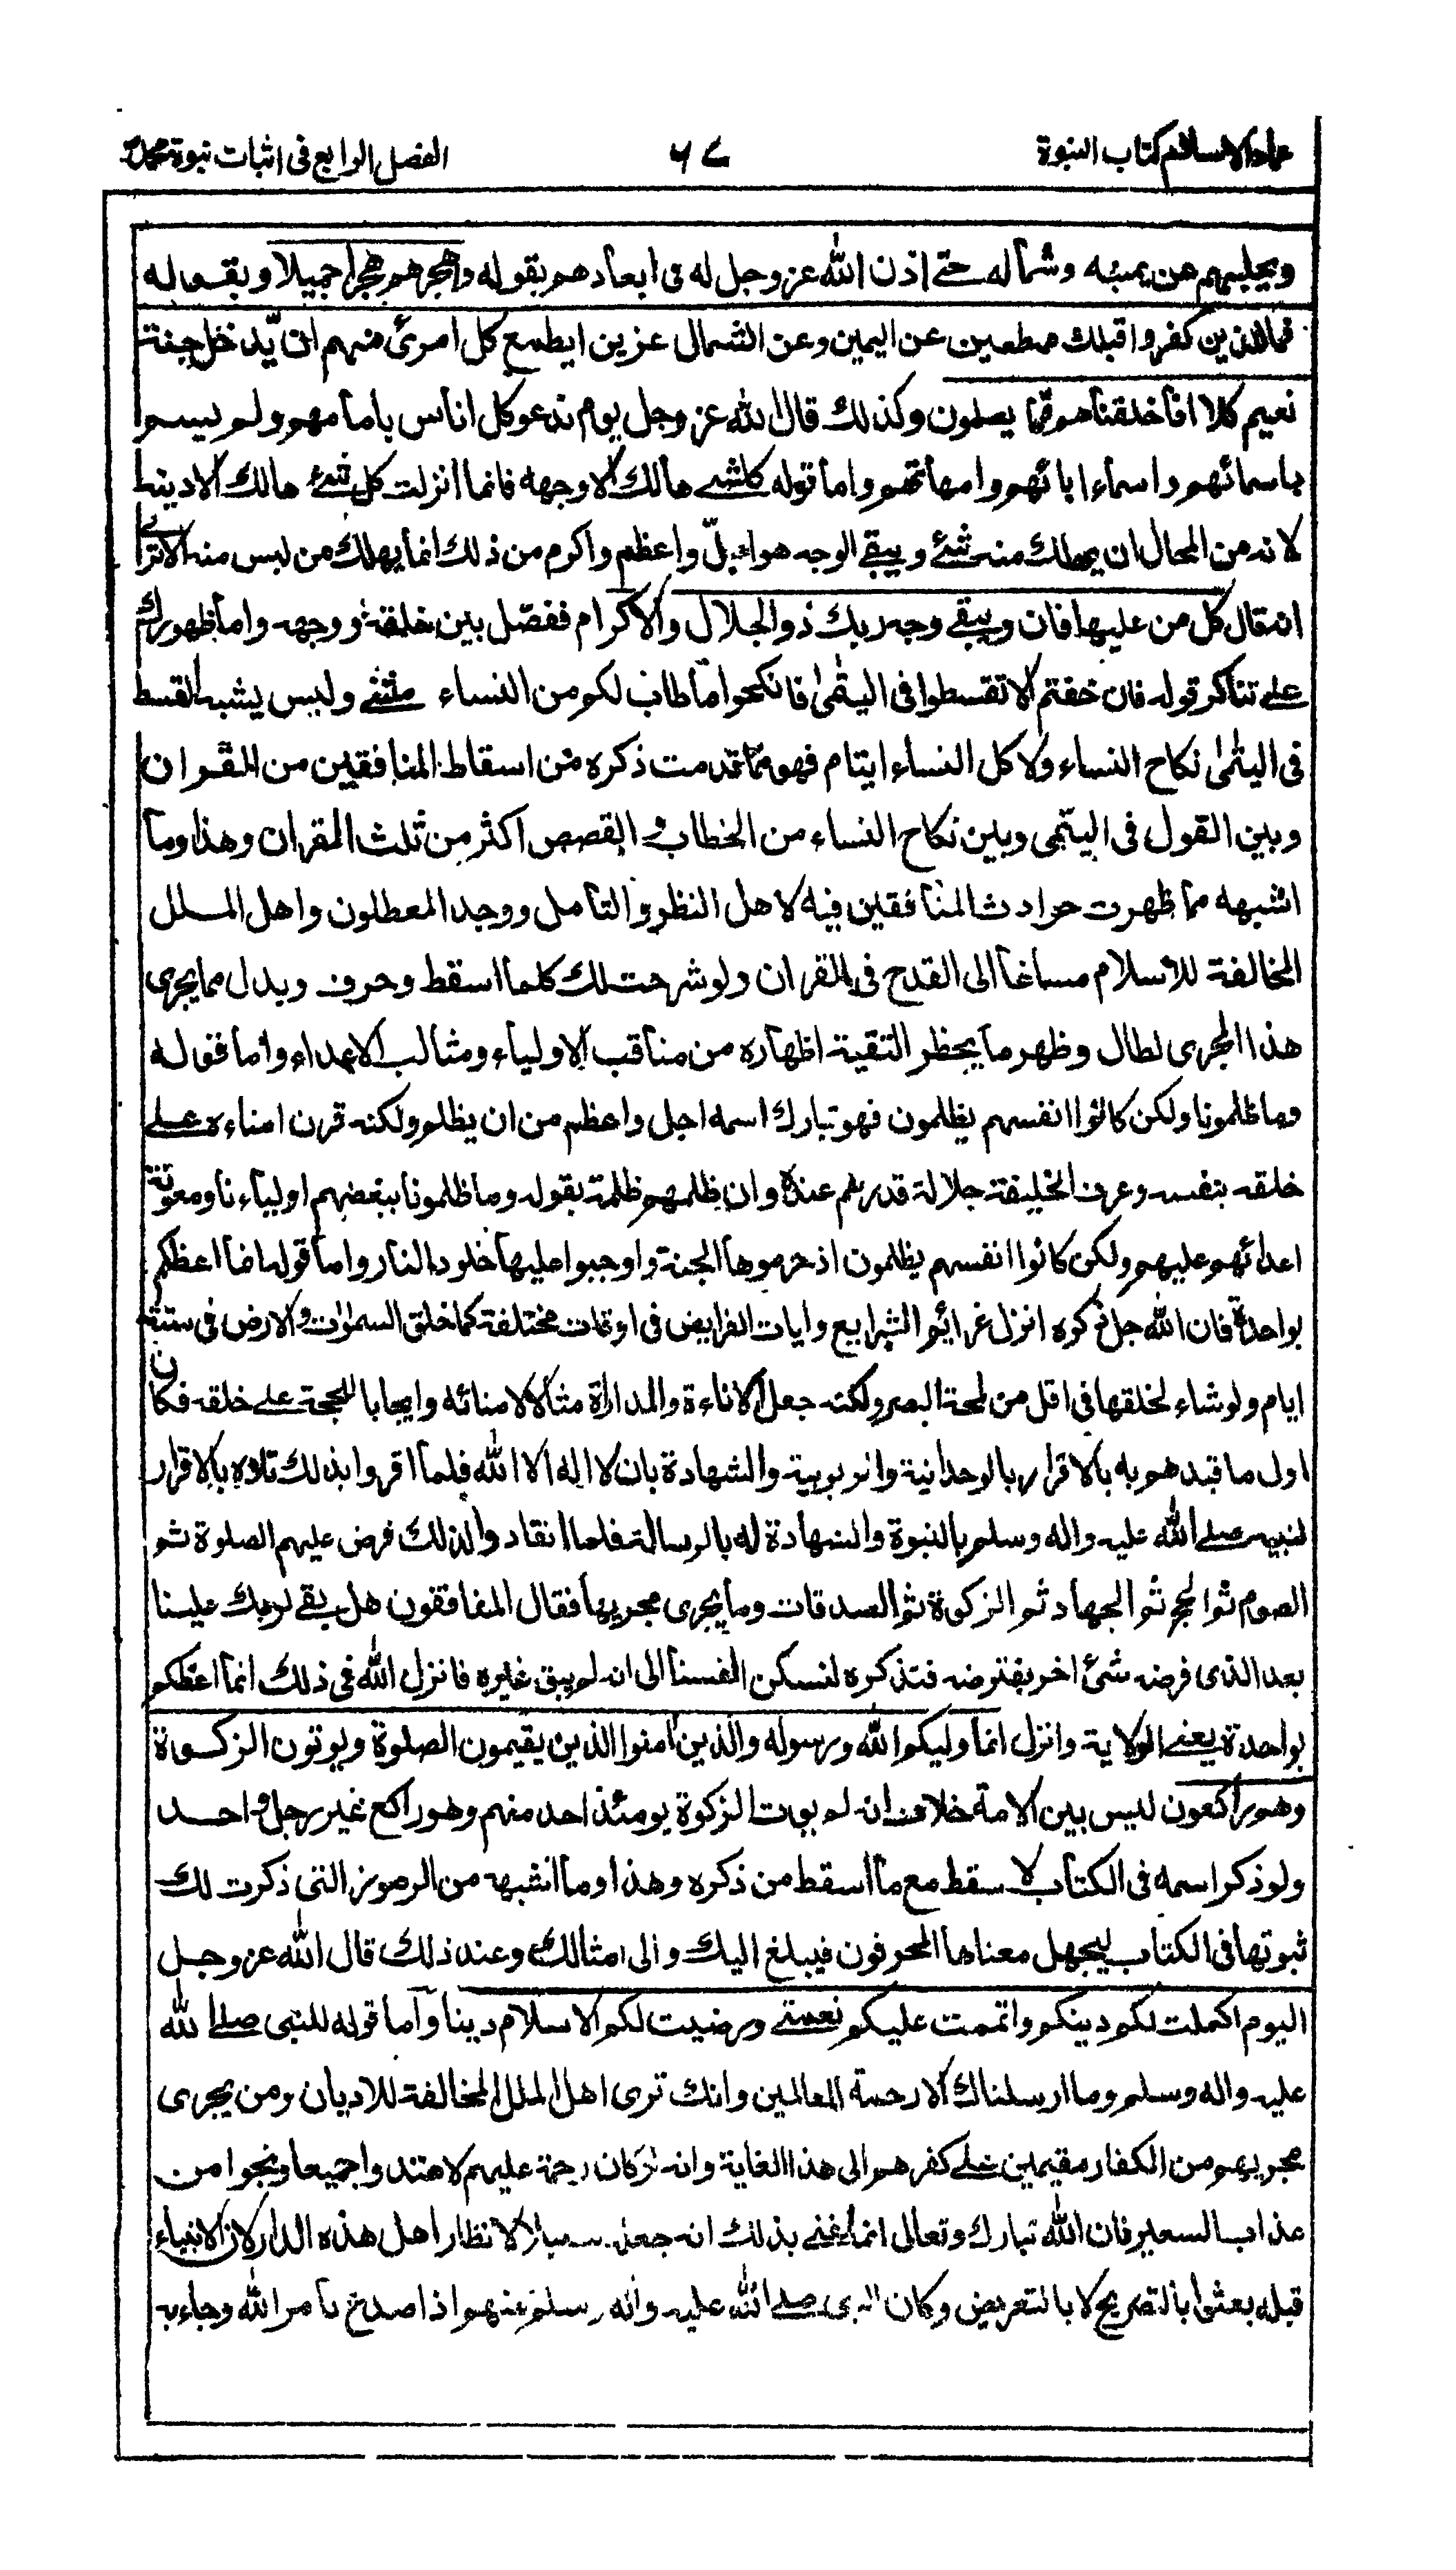 عماد الاسلام كتاب النبوة ٦٧ الفصل الرابع فى اثبات نبوة محمدؐ
ويجلسهم عن يمينه وشماله حتے اذن الله عز وجل له فى ابعادهم بقوله واهجرهم هجرا جميلا وبقوله
فمال الذين كفروا قبلك مهطعين عن اليمين وعن الشمال عزين ايطمع كل امرئ منهم ان يّدخل جنة
نعيم كلا انا خلقناهم ممّا يعلمون وكذلك قال الله عز وجل يوم ندعو كل اناس بامامهم ولم يسم
باسمائهم واسماء ابائهم وامهاتهم واما قوله كلشے هالك الا وجهه فانما انزلت كل شے هالك الا دينه
لانه من المحال ان يهلك منه شئے ويبقے الوجه هو اجلّ واعظم واكرم من ذلك انما يهلك من ليس منه الا ترے
انه قال كل من عليها فان ويبقے وجه ربك ذو الجلال والاكرام ففصّل بين خلقه ووجهه واما ظهورك
علے تناكر قوله فان خفتم الا تقسطوا فى اليتمٰى فانكحوا ما طاب لكم من النساء مثنٰے وليس يشبه القسط
فى اليتٰمٰى نكاح النساء ولا كل النساء ايتام فهو ممّا قدمت ذكره من اسقاط المنافقين من القران
وبين القول فى اليتٰمى وبين نكاح النساء من الخطاب و القصص اكثر من ثلث القران وهذا وما
اشبهه مما ظهرت حوادث المنافقين فيه لاهل النظر والتامل ووجد المعطلون واهل الملل
المخالفة للاسلام مساغا الى القدح فى القران ولو شرحت لك كلما اسقط وحرف وبدل مما يجرى
هذا المجرى لطال وظهر ما يحظر التقية اظهاره من مناقب الاولياء ومثالب الاعداء واما قوله
وما ظلمونا ولكن كانوا انفسهم يظلمون فهو تبارك اسمه اجل واعظم من ان يظلم ولكنه قرن امناءه علے
خلقه بنفسه وعرف الخليفة جلالة قدرهم عنده وان ظلمهم ظلمه بقوله وما ظلمونا ببغضهم اولياءنا ومعونة
اعدائهم عليهم ولكن كانوا انفسهم يظلمون اذ حرموها الجنة واوجبوا عليها خلود النار واما قوله انما اعظكم
بواحدة فان الله جل ذكره انزل عزائم الشرايع وايات الفرايض فى اوقات مختلفة كما خلق السمٰوٰت والارض فى ستة
ايام ولو شاء لخلقها فى اقل من لمحة البصر ولكنه جعل الاناءة والمداراة مثالا لامنائه وايجابا للحجة علے خلقه فكان
اول ما قيدهم به بالاقرار بالوحدانية والربوبية والشهادة بان لا اله الا الله فلما اقروا بذلك تلاه بالاقرار
لنبيه صلے الله عليه واله وسلم بالنبوة والشهادة له بالرسالة فلما انقادوا لذلك فرض عليهم الصلوة ثم
الصوم ثم الحج ثم الجهاد ثم الزكوة ثم الصدقات وما يجرى مجريها فقال المنافقون هل بقے لربك علينا
بعد الذى فرضه شئ اخر يفترضه فتذكره لتسكن انفسنا الى انه لم يبق غيره فانزل الله فى ذلك انما اعظكم
بواحدة يعنے الولاية وانزل انما وليكم الله ورسوله والذين امنوا الذين يقيمون الصلوة ويؤتون الزكوة
وهم راكعون ليس بين الامة خلاف انه لم يوت الزكوة يومئذ احد منهم وهو راكع غير رجل واحد
ولو ذكر اسمه فى الكتاب لا سقط مع ما اسقط من ذكره وهذا وما اشبهه من الرموز التى ذكرت لك
ثبوتها فى الكتاب ليجهل معناها المحرفون فيبلغ اليك والى امثالك وعند ذلك قال الله عز وجل
اليوم اكملت لكم دينكم واتممت عليكم نعمتے ورضيت لكم الاسلام دينا واما قوله للنبى صلے الله
عليه واله وسلم وما ارسلناك الا رحمة للعالمين وانك ترى اهل الملل المخالفة للاديان ومن يجرى
مجريهم من الكفار مقيمين علے كفرهم الى هذا الغاية وانه لو كان رحمة عليهم لاهتدوا جميعا ونجوا من
عذاب السعير فان الله تبارك وتعالى انما يعنے بذلك انه جعله سبيلا لانظار اهل هذه الدار لان الانبياء
قبله بعثوا بالتصريح لا بالتعريض وكان النبى صلے الله عليه واله وسلم منهم اذا صدع بامر الله وجاء به